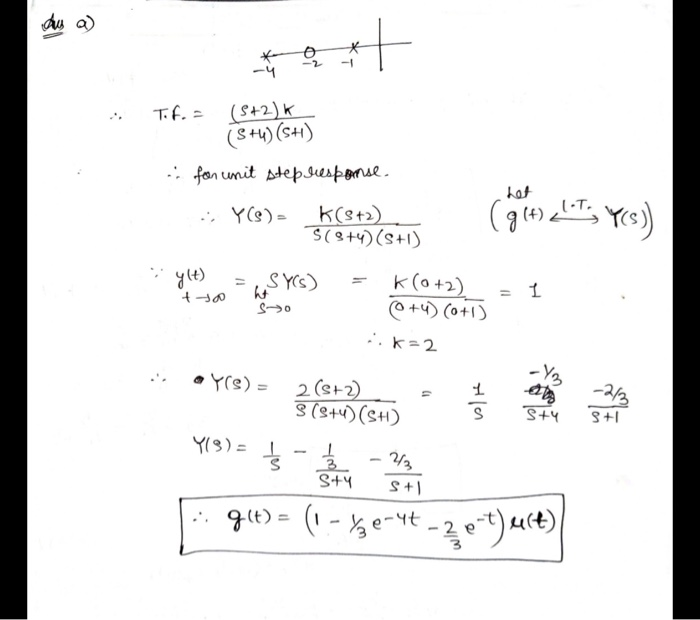 Ans a)
-4 -2 -1
∴ T.F. = (s+2)K / (s+4)(s+1)
∴ for unit step response.
∴ Y(s) = K(s+2) / s(s+4)(s+1) (Let g(t) ⟷ L.T. Y(s))
∵ y(t) t→∞ = lt s→0 SY(s) = K(0+2) / (0+4)(0+1) = 1
∴ K=2
∴ Y(s) = 2(s+2) / s(s+4)(s+1) = 1/s -1/3 / s+4 -2/3 / s+1
Y(s) = 1/s - 1/3 / s+4 - 2/3 / s+1
∴ g(t) = (1 - 1/3 e^-4t - 2/3 e^-t) u(t)